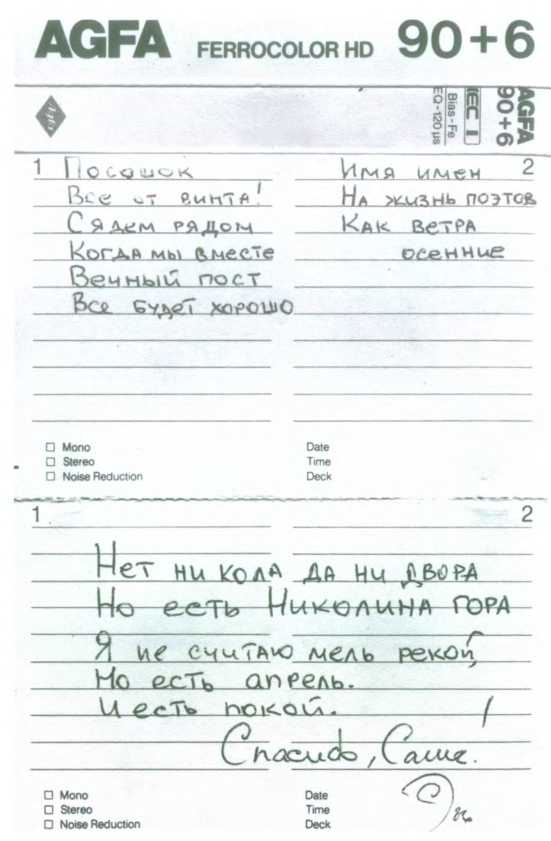 AGFA FERROCOLOR HD 90+6
AGFA
90+6
IEC I
Bias-Fe
EQ-120 µs
1
Посошок
Все от винта!
Сядем рядом
Когда мы вместе
Вечный пост
Все будет хорошо
2
Имя имен
На жизнь поэтов
Как ветра
осенние
☐ Mono
☐ Stereo
☐ Noise Reduction
Date
Time
Deck
1 2
Нет ни кола да ни двора
Но есть Николина гора
Я не считаю мель рекой,
Но есть апрель.
И есть покой.
Спасибо, Саше!
☐ Mono
☐ Stereo
☐ Noise Reduction
Date
Time
Deck